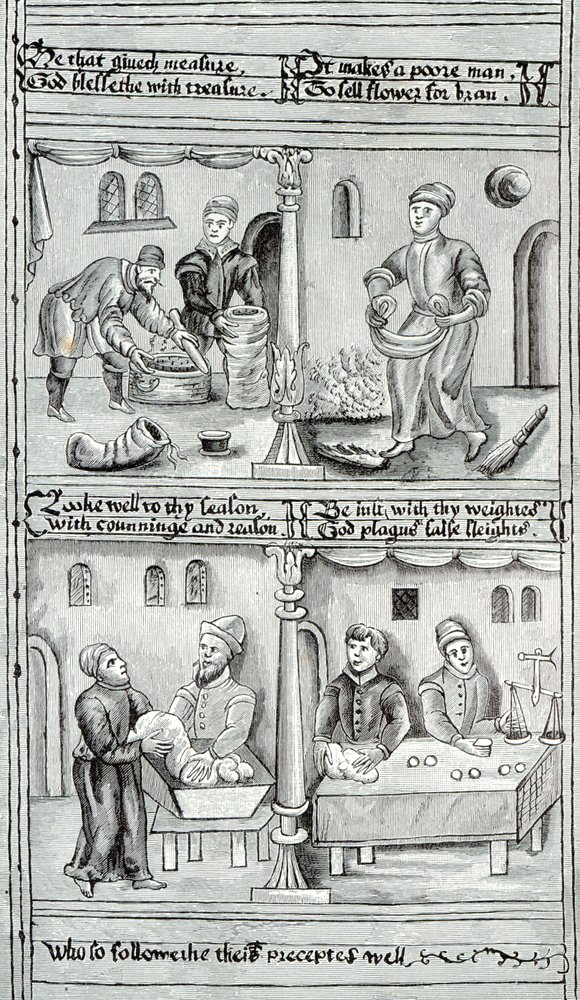 He that giueth measure,
God blessethe with treasure.
It makes a poore man,
To sell flower for bran.
Looke well to thy season,
with counninge and reason
Be iust with thy weightes
God plagus false sleights.
Who so followethe theis preceptes well